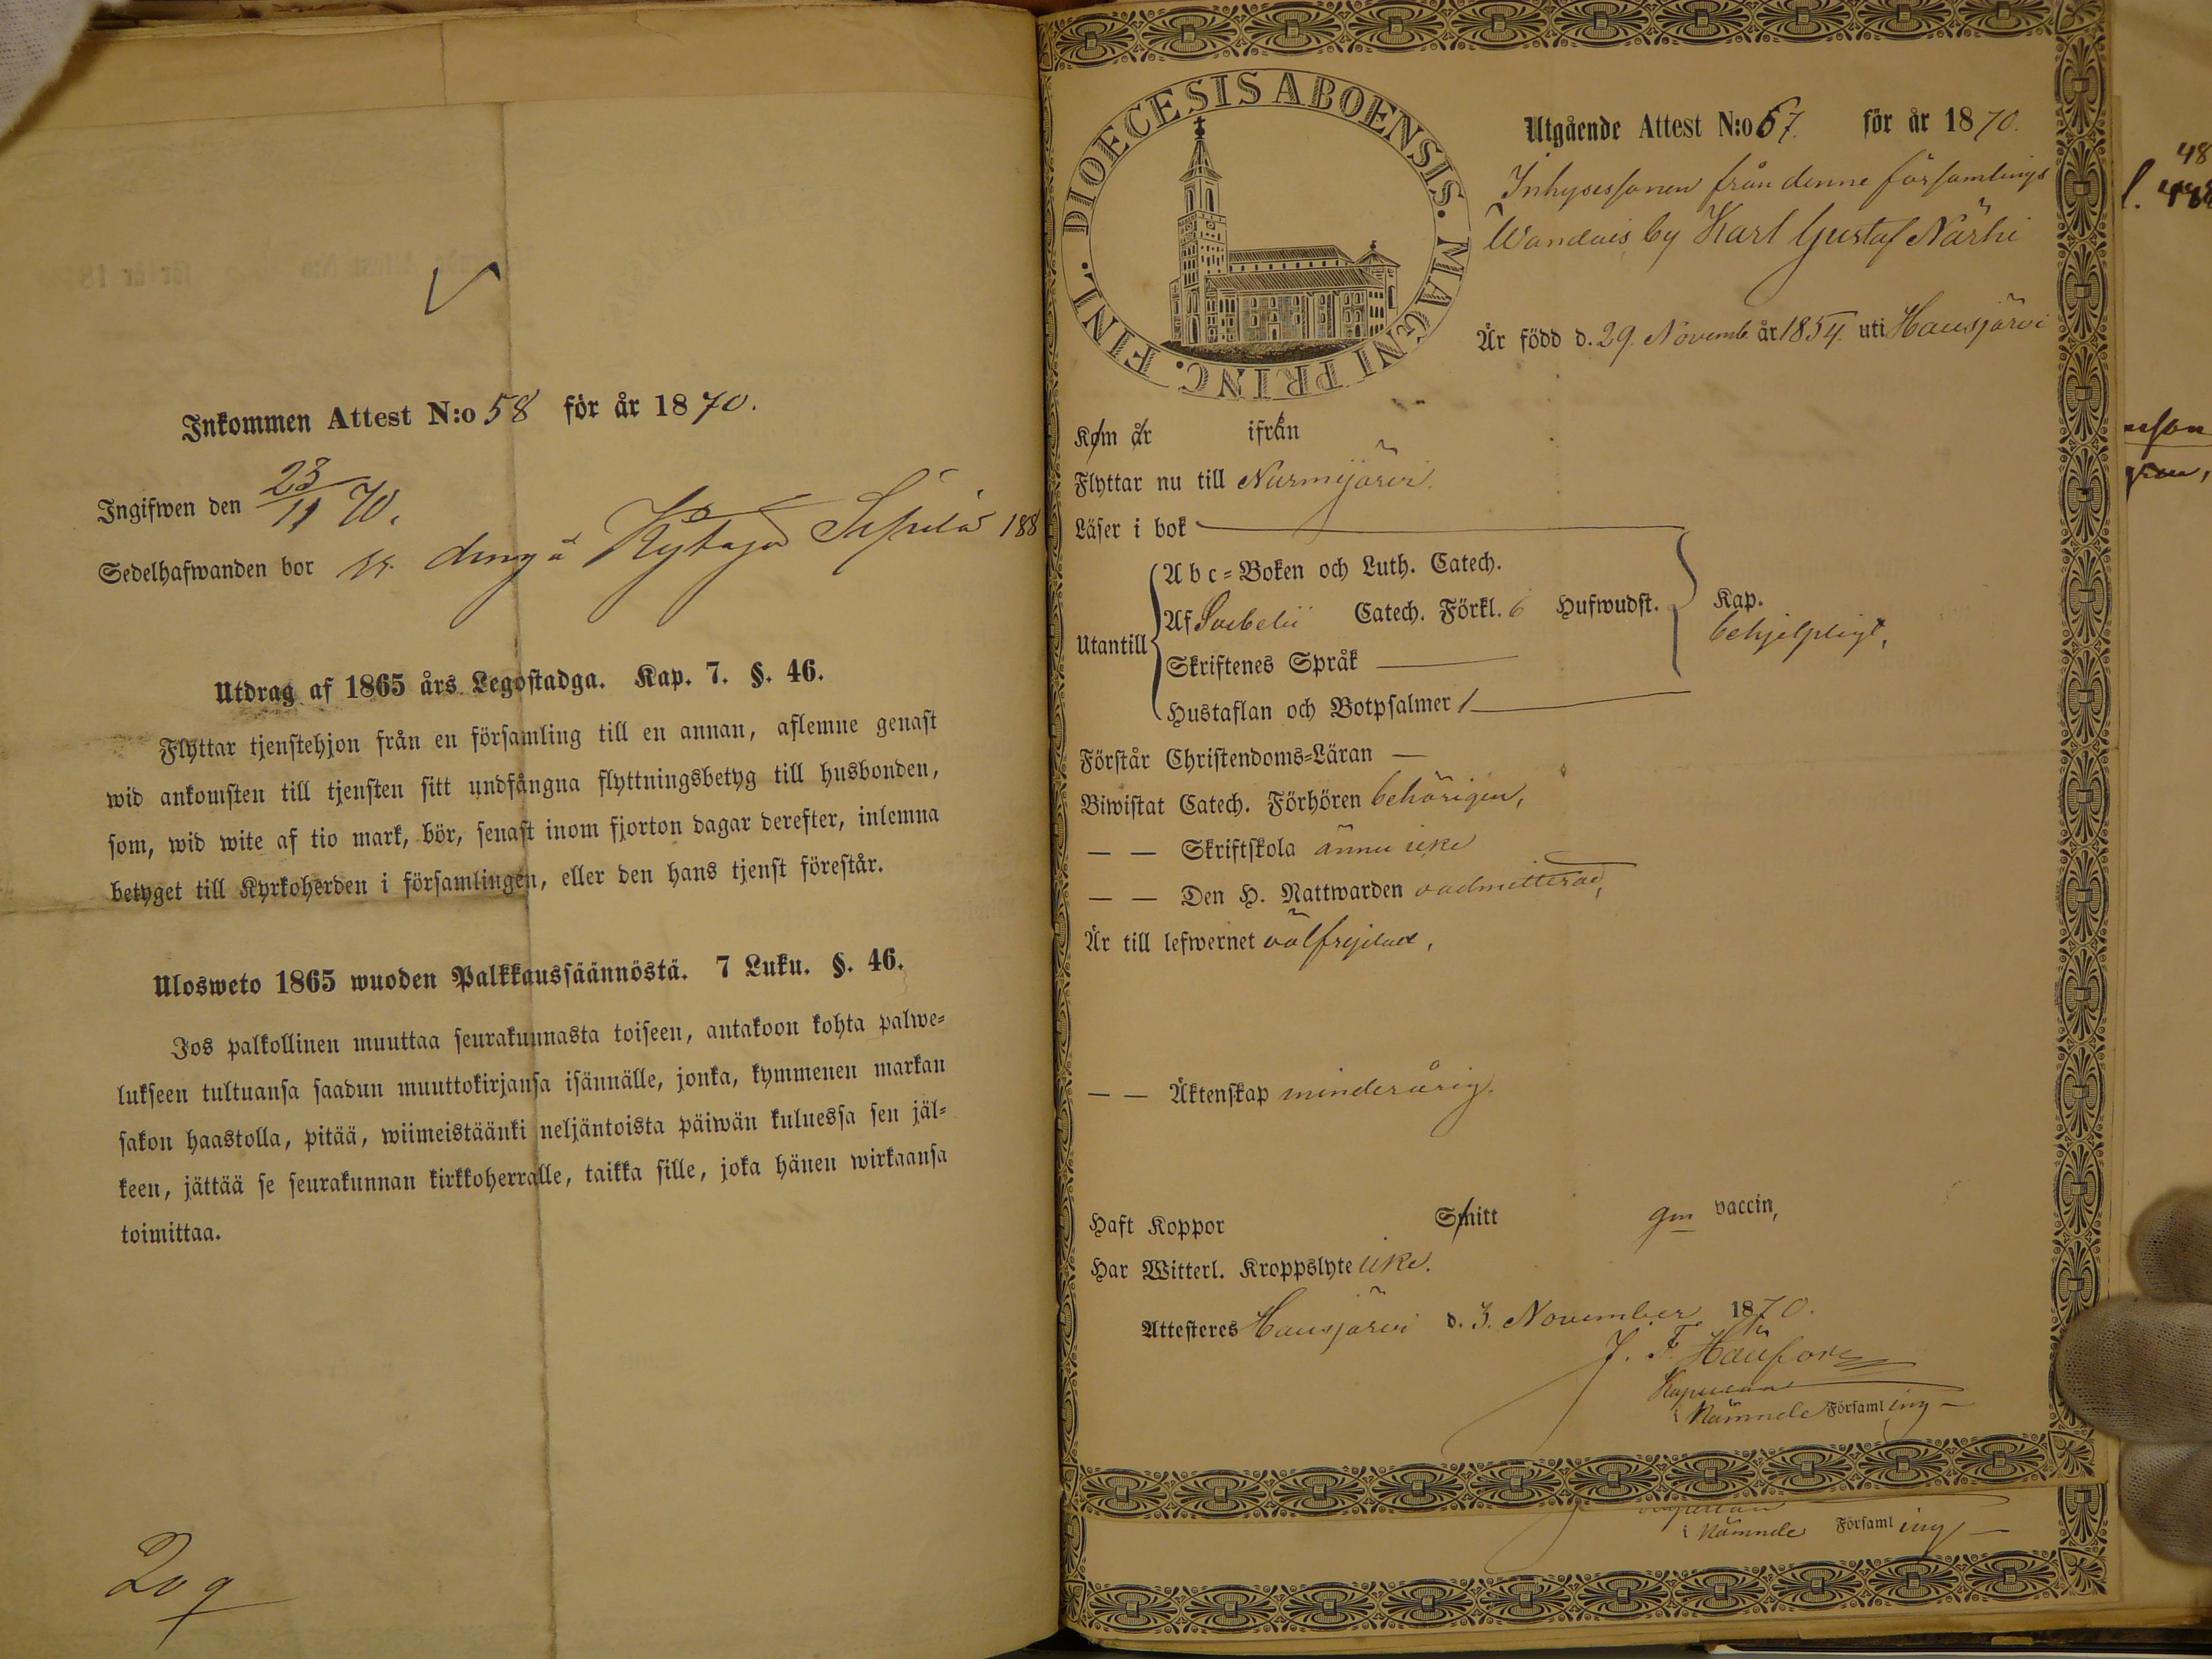 Inkommen Attest N:o 58 för år 1870.
Ingifwen den 23/11 70.
Sedelhafwanden bor dräng å Kytäjä Seppälä 188
Utdrag af 1865 års Legostadga. Kap. 7. §. 46.
Flyttar tjenstehjon från en församling till en annan, aflemne genast
wid ankomsten till tjensten sitt undfångna flyttningsbetyg till husbonden,
som, wid wite af tio mark, bör, senast inom fjorton dagar derefter, inlemna
betyget till Kyrkoherden i församlingen, eller den hans tjenst förestår.
Ulosweto 1865 wuoden Palkkaussäännöstä. 7 Luku. §. 46.
Jos palkollinen muuttaa seurakunnasta toiseen, antakoon kohta palwe-
lukseen tultuansa saadun muuttokirjansa isännälle, jonka, kymmenen markan
sakon haastolla, pitää, wiimeistäänki neljäntoista päiwän kuluessa sen jäl-
keen, jättää se seurakunnan kirkkoherralle, taikka sille, joka hänen wirkaansa
toimittaa.
209
DIOECESIS ABOENSIS. MAGNI PRINC. FINL.
Utgående Attest N:o 67. för år 1870.
Inhysessonen från denne församlings
Wandais by Karl Gustaf Närhi
Är född d. 29. Novemb. år 1854. uti Hausjärvi
Kom år ifrån
Flyttar nu till Nurmijärvi.
Läser i bok
Abc-Boken och Luth. Catech.
Utantill Af Svebelii Catech. Förkl. 6 Hufwudst. Kap.
behjelpligt,
Skriftenes Språk
Hustaflan och Botpsalmer 1
Förstår Christendoms-Läran —
Biwistat Catech. Förhören behörigen,
— — Skriftskola ännu icke
— — Den H. Nattwarden oadmitterad,
Är till lefwernet välfrejdad,
— — Äktenskap minderårig.
Haft Koppor Smitt gm vaccin,
Har Witterl. Kroppslyte icke.
Attesteres Hausjärvi d. 3. November 1870.
J. F.
Kapellan
i Nämnde Församling —
Kapellan
i Nämnde Församling —
48